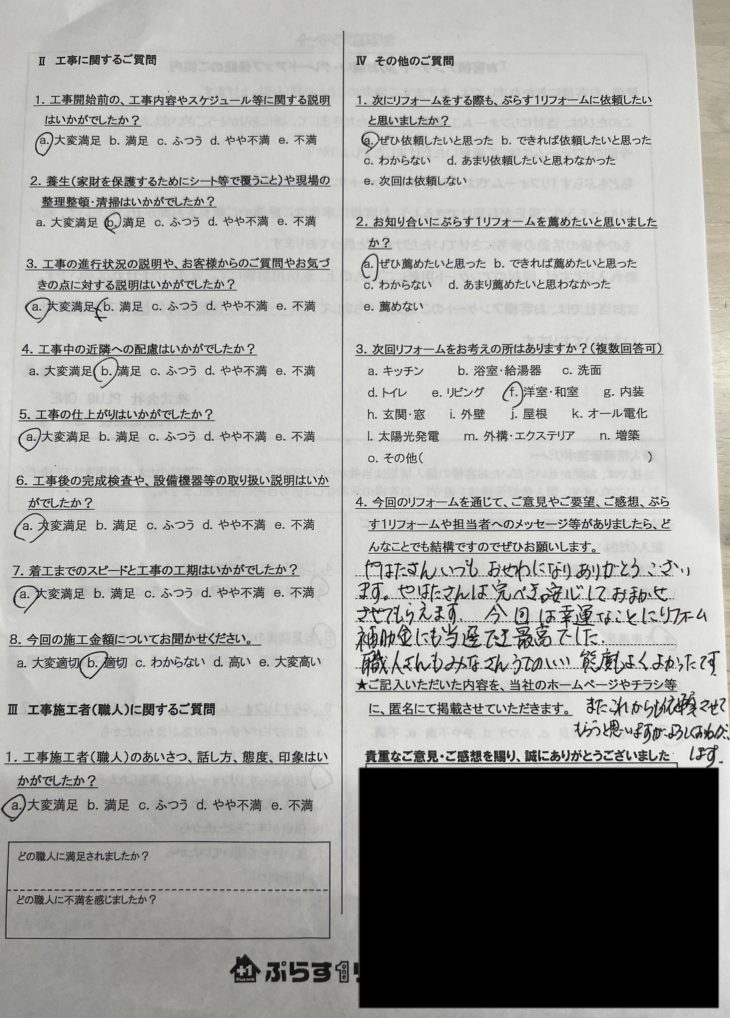 Ⅱ 工事に関するご質問
1. 工事開始前の、工事内容やスケジュール等に関する説明
はいかがでしたか?
a. 大変満足 b. 満足 c. ふつう d. やや不満 e. 不満
2. 養生(家財を保護するためにシート等で覆うこと)や現場の
整理整頓・清掃はいかがでしたか?
a. 大変満足 b. 満足 c. ふつう d. やや不満 e. 不満
3. 工事の進行状況の説明や、お客様からのご質問やお気づ
きの点に対する説明はいかがでしたか?
a. 大変満足 b. 満足 c. ふつう d. やや不満 e. 不満
4. 工事中の近隣への配慮はいかがでしたか?
a. 大変満足 b. 満足 c. ふつう d. やや不満 e. 不満
5. 工事の仕上がりはいかがでしたか?
a. 大変満足 b. 満足 c. ふつう d. やや不満 e. 不満
6. 工事後の完成検査や、設備機器等の取り扱い説明はいか
がでしたか?
a. 大変満足 b. 満足 c. ふつう d. やや不満 e. 不満
7. 着工までのスピードと工事の工期はいかがでしたか?
a. 大変満足 b. 満足 c. ふつう d. やや不満 e. 不満
8. 今回の施工金額についてお聞かせください。
a. 大変適切 b. 適切 c. わからない d. 高い e. 大変高い
Ⅲ 工事施工者(職人)に関するご質問
1. 工事施工者(職人)のあいさつ、話し方、態度、印象はい
かがでしたか?
a. 大変満足 b. 満足 c. ふつう d. やや不満 e. 不満
どの職人に満足されましたか?
どの職人に不満を感じましたか?
Ⅳ その他のご質問
1. 次にリフォームをする際も、ぷらす1リフォームに依頼したい
と思いましたか?
a. ぜひ依頼したいと思った b. できれば依頼したいと思った
c. わからない d. あまり依頼したいと思わなかった
e. 次回は依頼しない
2. お知り合いにぷらす1リフォームを薦めたいと思いました
か?
a. ぜひ薦めたいと思った b. できれば薦めたいと思った
c. わからない d. あまり薦めたいと思わなかった
e. 薦めない
3. 次回リフォームをお考えの所はありますか?(複数回答可)
a. キッチン b. 浴室・給湯器 c. 洗面
d. トイレ e. リビング f. 洋室・和室 g. 内装
h. 玄関・窓 i. 外壁 j. 屋根 k. オール電化
l. 太陽光発電 m. 外構・エクステリア n. 増築
o. その他( )
4. 今回のリフォームを通じて、ご意見やご要望、ご感想、ぷら
す1リフォームや担当者へのメッセージ等がありましたら、ど
んなことでも結構ですのでぜひお願いします。
やはたさんいつも おせわになりありがとうござい
ます。やはたさんは完ぺき。安心しておまかせ
させてもらえます。 今回は幸運なことにリフォーム
補助金にも当選でき最高でした.
職人さんもみなさんうでのいい 態度もよくよかったです
★ご記入いただいた内容を、当社のホームページやチラシ等
に、匿名にて掲載させていただきます。
またこれからも依頼させて
もらうと思いますがよろしくおねがい
します.
貴重なご意見・ご感想を賜り、誠にありがとうございました
+1
ぷらす1
one